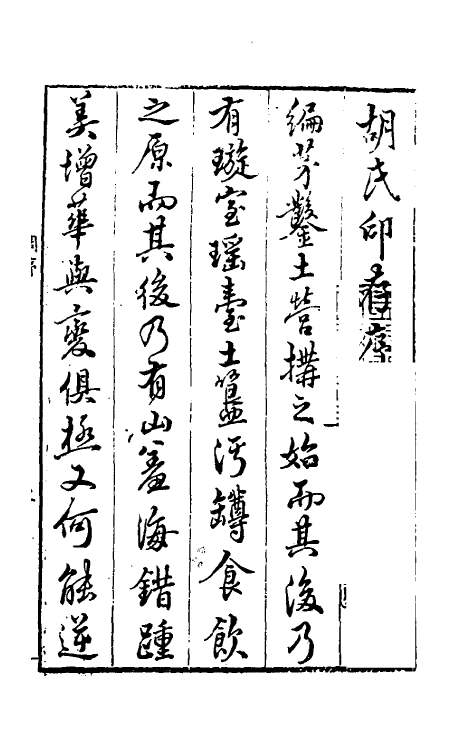 胡氏印存序
編茅鑿土營搆之始而其後乃
有璇室瑶臺土簋汙罇食飲
之原而其後乃有山羞海錯踵
美增華與變俱極又何能逆